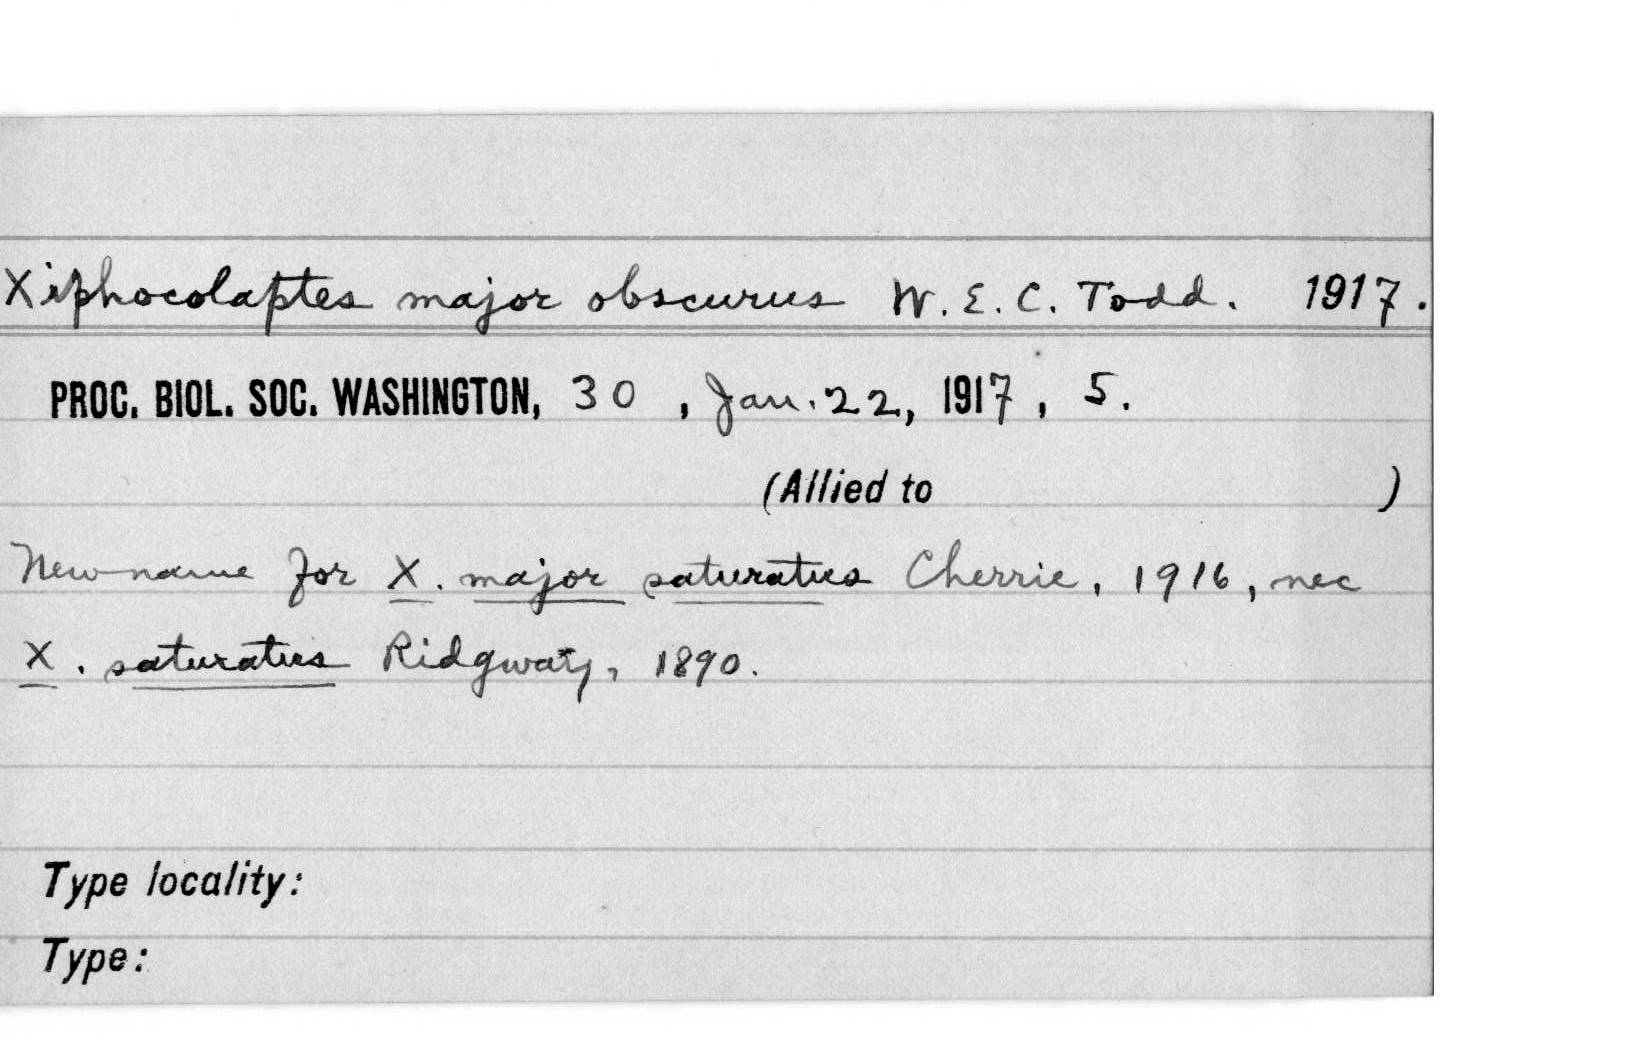 Xiphocolaptes major obscurus W. E. C. Todd. 1917.
PROC. BIOL. SOC. WASHINGTON, 30, Jan. 22, 1917, 5.
(Allied to )
New name for X. major saturatus Cherrie, 1916, nec
X. saturatus Ridgway, 1890.
Type locality:
Type: